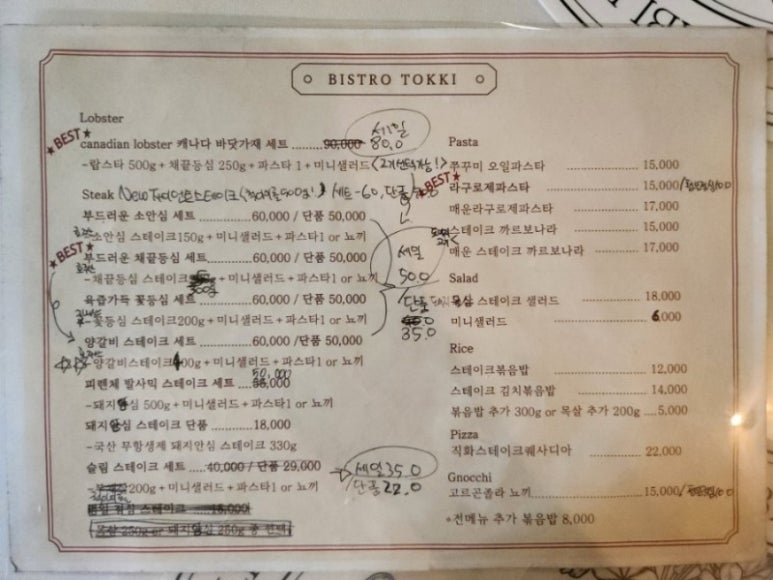 BISTRO TOKKI
Lobster
BEST
canadian lobster 캐나다 바닷가재 세트 90,000
세일 80.0
-랍스타 500g + 채끝등심 250g + 파스타 1 + 미니샐러드
Steak New 자이언트스테이크
부드러운 소안심 세트 60,000 / 단품 50,000
소안심 스테이크150g + 미니샐러드 + 파스타1 or 뇨끼
BEST
부드러운 채끝등심 세트 60,000 / 단품 50,000
-채끝등심 스테이크 300g + 미니샐러드 + 파스타1 or 뇨끼
육즙가득 꽃등심 세트 60,000 / 단품 50,000
-꽃등심 스테이크200g + 미니샐러드 + 파스타1 or 뇨끼
양갈비 스테이크 세트 60,000 / 단품 50,000
-양갈비스테이크400g + 미니샐러드 + 파스타1 or 뇨끼
세일
50.0
단품
35.0
피렌체 발사믹 스테이크 세트 50,000
-돼지 심 500g + 미니샐러드 + 파스타1 or 뇨끼
돼지 심 스테이크 단품 18,000
-국산 무항생제 돼지안심 스테이크 330g
슬림 스테이크 세트 40,000 / 단품 29,000
세일 35.0
단품 22.0
200g + 미니샐러드 + 파스타1 or 뇨끼
Pasta
쭈꾸미 오일파스타 15,000
BEST
라구로제파스타 15,000
매운라구로제파스타 17,000
스테이크 까르보나라 15,000
매운 스테이크 까르보나라 17,000
Salad
목살 스테이크 샐러드 18,000
미니샐러드 6,000
Rice
스테이크볶음밥 12,000
스테이크 김치볶음밥 14,000
볶음밥 추가 300g or 목살 추가 200g 5,000
Pizza
직화스테이크퀘사디아 22,000
Gnocchi
고르곤졸라 뇨끼 15,000
*전메뉴 추가 볶음밥 8,000